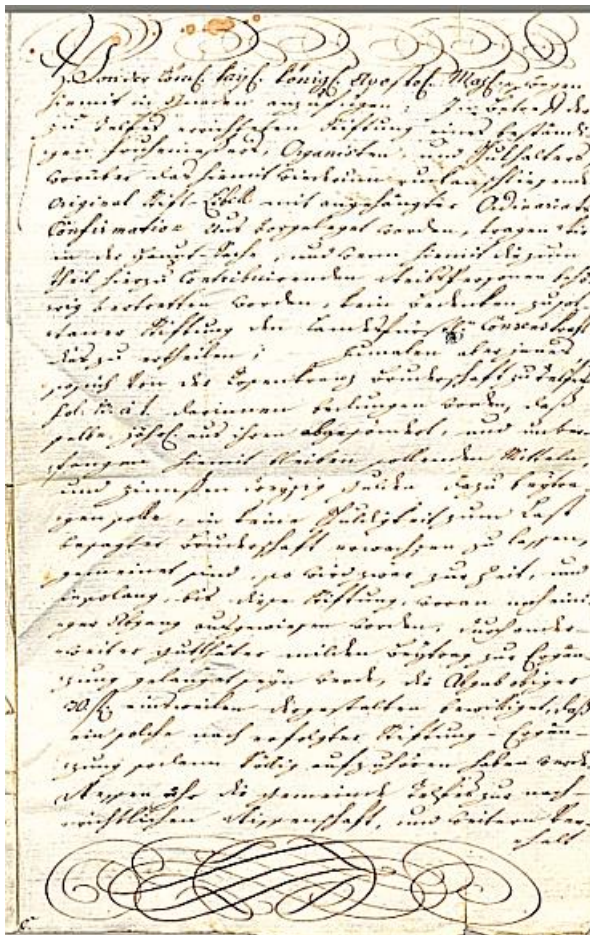 Von der Röm. kayl. königl. Apostol. May. wegen
hiemit in Gnaden anzufügen: In betreff der
zu Telfes errichteten Stiftung eines beständi-
gen Organisten, und Schulhalters,
worüber das hiemit wiederum zurückschließende
Original Stift-Libell mit angehängter Ordinariats
Confirmation Uns vorgelegt worden, tragen wir
in der Haupt-Sache, und wenn hiemit die zum
Theil hierzu Contribuirenden behö-
rig vertretten worden, kein bedenken
Stiftung den Landesfürstl. Consens
zu ertheilen; Zumalen aber jenes,
von der Rosenkranz Bruderschaft zu Telfes
darinnen bedungen worden, daß
selbe jährl. aus ihren abgesöndert, und
hiemit bleiben sollenden Mitteln,
und Zinnsen dreyßig Gulden dazu beytra-
gen solle, in keine Schuldigkeit zum Last
besagter Bruderschaft erwachsen zu lassen,
gemeinet sind, so wird zwar zur Zeit, und
insolang, bis diese Stiftung, woran noch eini-
ger Abgang ausgewiesen worden, durch ander-
weiter Gutthäter milden Beytrag zur Ergän-
zung gelanget seyn werde, die Abgab obiger
30 f. einsweilen dergestalten bewilliget, daß
ein solche nach erfolgter Stiftung-Ergän-
zung sodann völlig aufzuhören haben werde.
Wessen ihr die Gemeinde Telfes zur nach-
richtlichen Wissenschaft, und weitern Ver-
halt